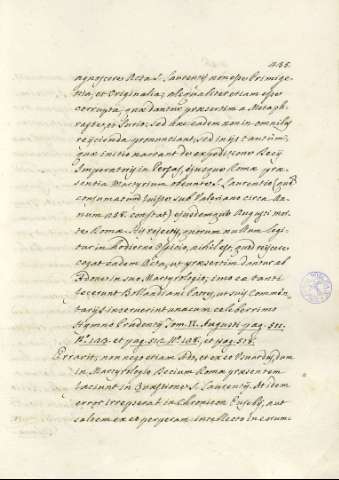 435.
agnoscere Acta S. Laurencij non esse primige-
nia, et Originalia; aliqualiter etiam esse
corrupta, quæ dantur præsertim a Metaph-
raste, et Surio. Sed hæc eadem non in omnibus
reijcienda pronunciant, sed in ijs tantum,
quæ initio narrant de expeditione Decij
Imperatoris in Persas, ejusque Romæ præ-
sentia Martyrium obeunte S. Laurentio (quod
consummatum fuisse sub Valeriano circa An-
num 258. constat) ejusdemque Augusti mor-
te Romæ. His rejectis, quorum nullum legi-
tur in hodierno Officio, nihil est, quod reijs
eadem Acta, ut præsertim dantur ab
Adone in suo Martyrologio; imo ea tanti
fecerunt Bollandiani Patres, ut suis Commen-
tarijs inseruerint una cum celeberrimo
Hymno Prudentij Tom. II. Augusti pag. 511.
N.º 123. et pag. 512. N.º 128. et pag. 518.
Erravit, non nego etiam Ado, et ex eo Usuardus, dum
in Martyrologio Decium Romæ præsentem
faciunt in Quæstione S. Laurencij. At idem
error irrepserat in Chronicon Eusebij, aut
saltem ex perperam intellecto in eorum